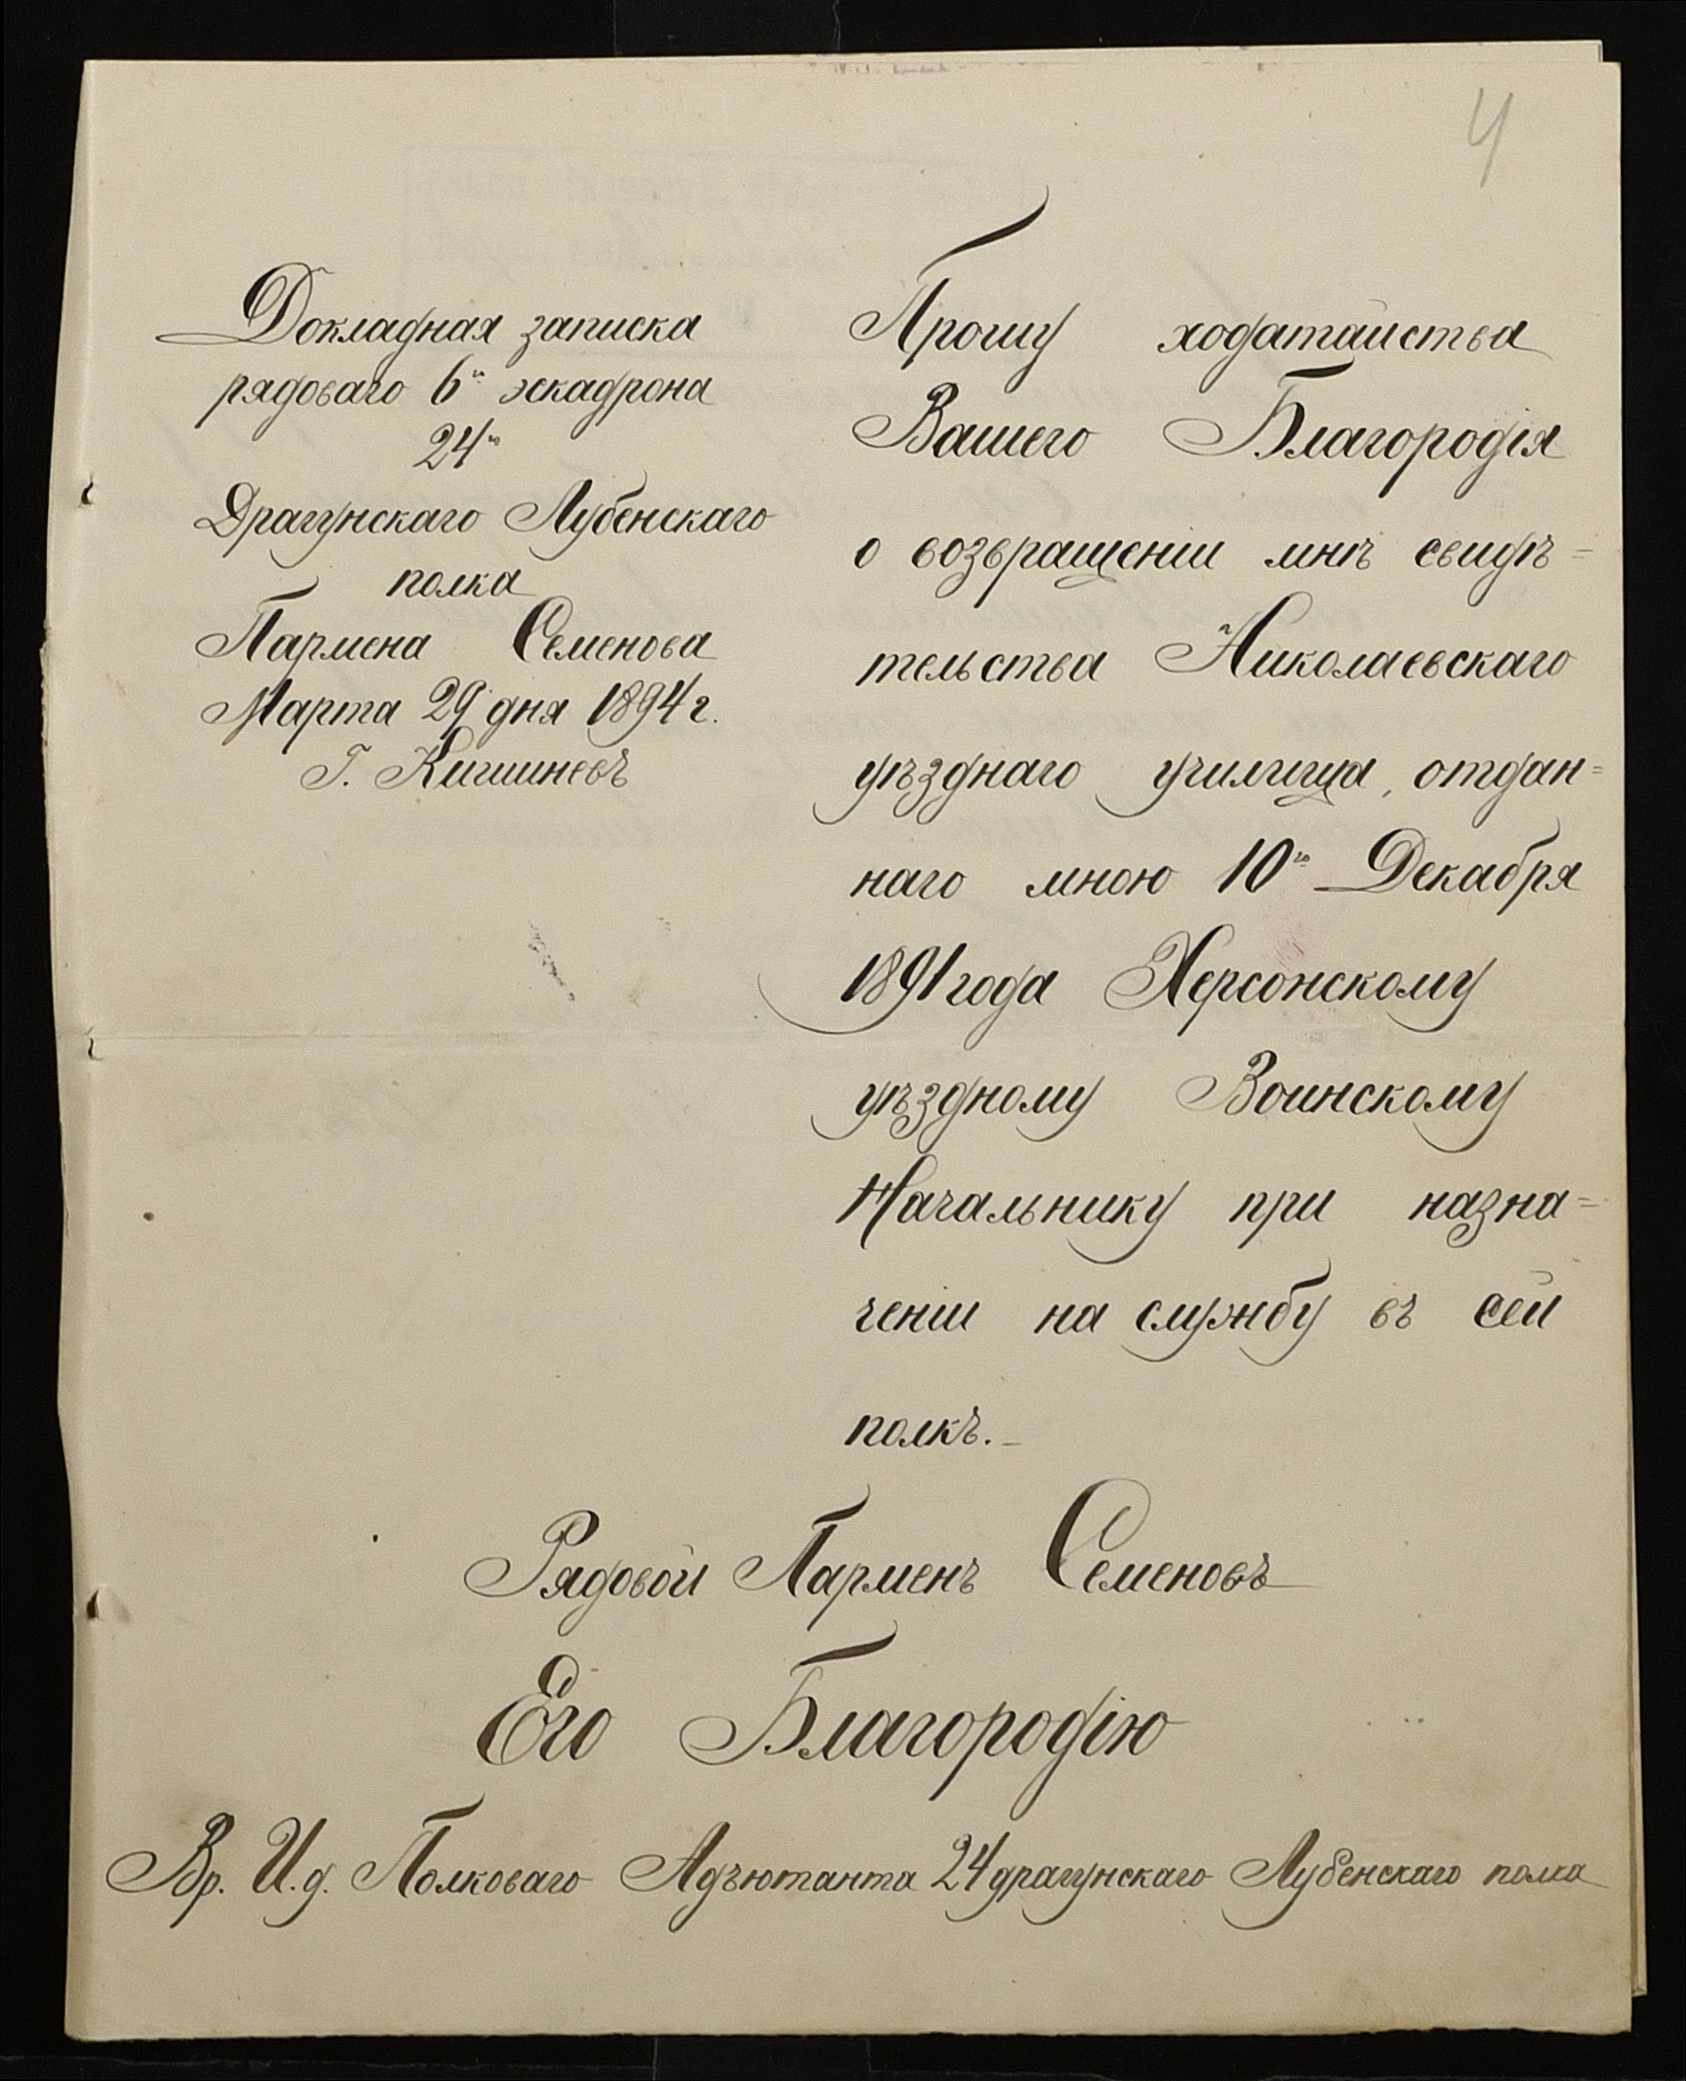 4
Докладная записка
рядоваго 6го эскадрона
24го
Драгунскаго Лубенскаго
полка
Пармена Семенова
Марта 29 дня 1894 г.
Г. Кишиневъ
Прошу ходатайства
Вашего Благородія
о возвращеніи мнѣ свидѣ=
тельства Николаевскаго
уѣзднаго училища, отдан=
наго мною 10го Декабря
1891 года Херсонскому
уѣздному Воинскому
Начальнику при назна=
ченіи на службу въ сей
полкъ.
Рядовой Парменъ Семеновъ
Его Благородію
Вр. И. д. Полковаго Адъютанта 24 драгунскаго Лубенскаго полка